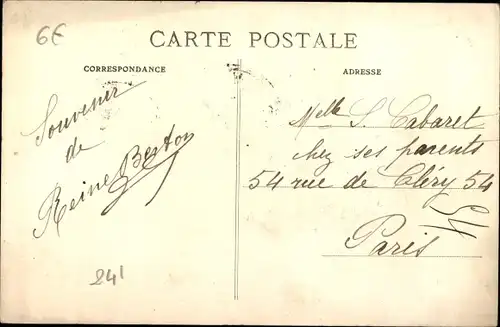 6E
CARTE POSTALE
CORRESPONDANCE
ADRESSE
Souvenir
de
Reine Berton
241
Melle S. Cabaret
chez ses parents
54 rue de Cléry 54
Paris